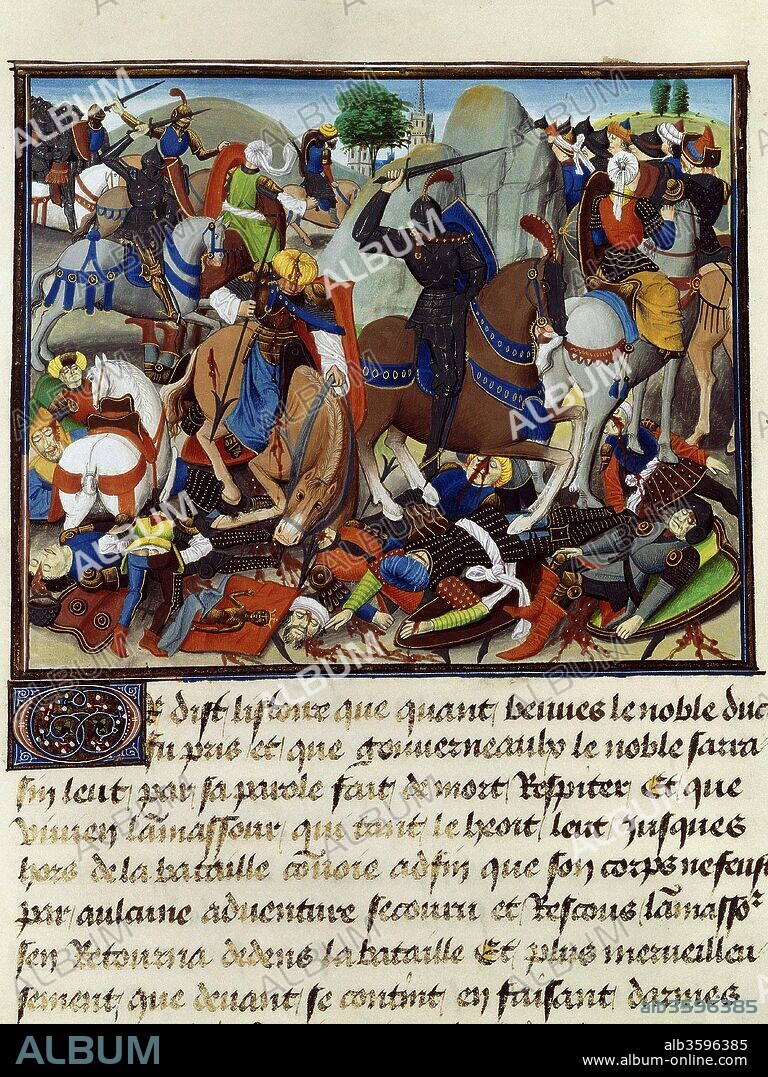 Or dist listoire que quant beuues le noble duc
fu pris et que gouuerneaulx le noble sarra
sin leut par sa parole fait de mort Respiter Et que
viuien lamassour qui tant le heoit leut jusques
hors de la bataille conuoie adfin que son corps ne feust
par aulcune aduenture secouru et Rescous lamassor
sen Retourna dedens la bataille Et plus merueilleu
sement que deuant se contint en faisant darmes
alb3596385
ALBUM
alb3596385
www.album-online.com